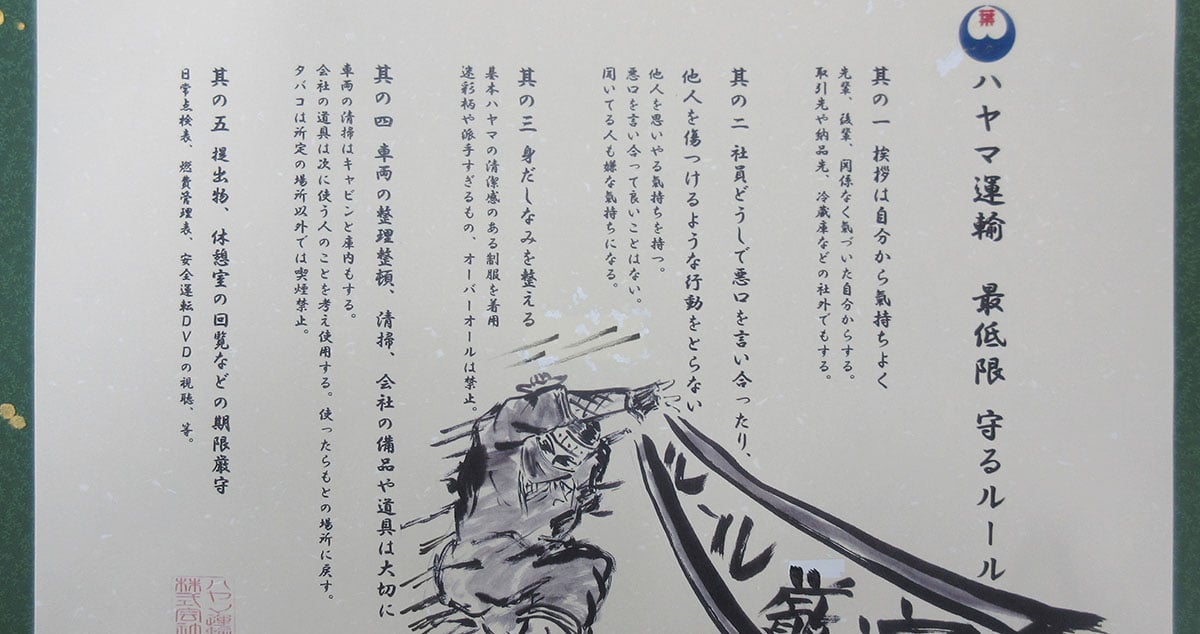 葉
ハヤマ運輸 最低限 守るルール
其の一 挨拶は自分から氣持ちよく
先輩、後輩、関係なく氣づいた自分からする。
取引先や納品先、冷蔵庫などの社外でもする。
其の二 社員どうしで悪口を言い合ったり、
他人を傷つけるような行動をとらない
他人を思いやる氣持ちを持つ。
悪口を言い合って良いことはない。
聞いてる人も嫌な氣持ちになる。
其の三 身だしなみを整える
基本ハヤマの清潔感のある制服を着用
迷彩柄や派手すぎるもの、オーバーオールは禁止。
其の四 車両の整理整頓、清掃、会社の備品や道具は大切に
車両の清掃はキャビンと庫内もする。
会社の道具は次に使う人のことを考え使用する。使ったらもとの場所に戻す。
タバコは所定の場所以外では喫煙禁止。
其の五 提出物、休憩室の回覧などの期限厳守
日常点検表、燃費管理表、安全運転DVDの視聴、等。
ルール
厳
ハヤマ運輸
株式会社